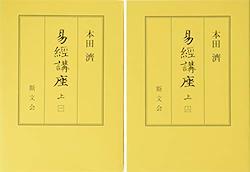 本田 濟
易經講座 上
斯文会
本田 濟
易經講座 上
斯文会